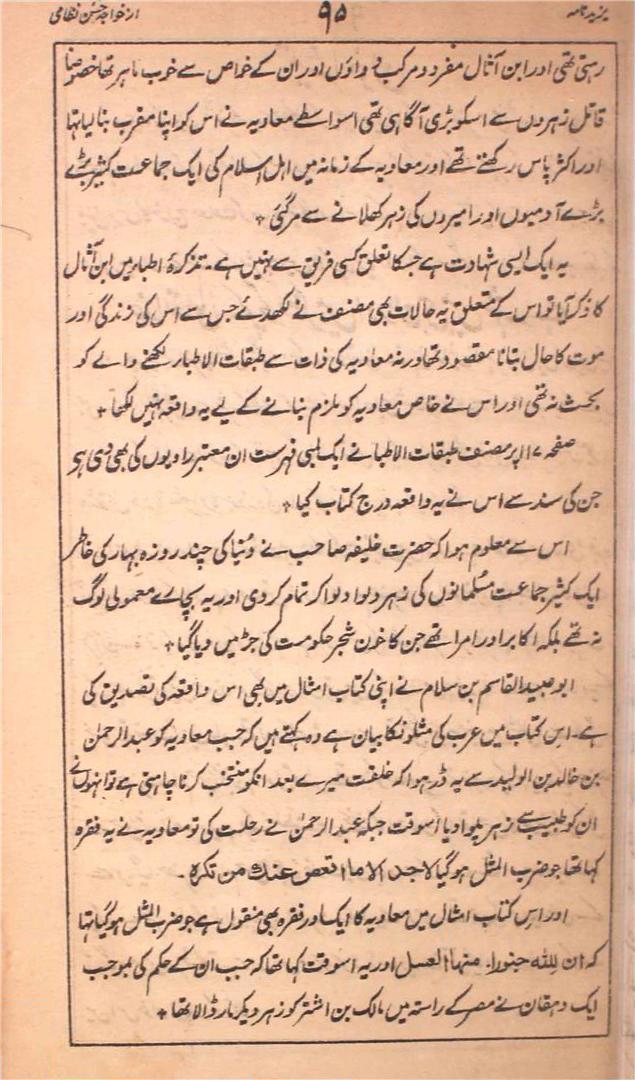 یزید نامہ ۹۵ از خواجہ حسن نظامی
رہتی تھی اور ابن آثال مفرد و مرکب دواؤں اور ان کے خواص سے خوب ماہر تھا خصوصاً
قاتل زہروں سے اسکو بڑی آگاہی تھی اسواسطے معاویہ نے اس کو اپنا مقرب بنا لیا تہا
اور اکثر پاس رکھتے تھے اور معاویہ کے زمانہ میں اہل اسلام کی ایک جماعت کثیر بڑے
بڑے آدمیوں اور امیروں کی زہر کھلانے سے مر گئی ٭
یہ ایک ایسی شہادت ہے جسکا تعلق کسی فریق سے نہیں ہے۔ تذکرۂ اطبار میں ابن آثال
کا ذکر آیا تو اس کے متعلق یہ حالات بھی مصنف نے لکھدئے جس سے اس کی زندگی اور
موت کا حال بتانا مقصود تھا ورنہ معاویہ کی ذات سے طبقات الاطبار لکھنے والے کو
بحث نہ تھی اور اس نے خاص معاویہ کو ملزم بنانے کے لیے یہ واقعہ نہیں لکھا ٭
صفحہ ۱۱۷ پر مصنف طبقات الاطبا نے ایک لمبی فہرست ان معتبر راویوں کی بھی دی ہی
جن کی سند سے اس نے یہ واقعہ درج کتاب کیا ٭
اس سے معلوم ہوا کہ حضرت خلیفہ صاحب نے دُنیا کی چند روزہ بہار کی خاطر
ایک کثیر جماعت مسلمانوں کی زہر دلوا دلوا کر تمام کر دی اور یہ بچاے معمولی لوگ
نہ تھے بلکہ اکابر اور امرا تھے جن کا خون شجر حکومت کی جڑ میں دیا گیا ٭
ابو عبید القاسم بن سلام نے اپنی کتاب امثال میں بھی اس واقعہ کی تصدیق کی
ہے۔ اس کتاب میں عرب کی مثلونکا بیان ہے وہ کہتے ہیں کہ جب معاویہ کو عبد الرحمٰن
بن خالد بن الولید سے یہ ڈر ہوا کہ خلقت میرے بعد انکو منتخب کرنا چاہتی ہے تو انہوں نے
ان کو طبیب سے زہر پلوا دیا اسوقت جبکہ عبد الرحمٰن نے رحلت کی تو معاویہ نے یہ فقرہ
کہا تھا جو ضرب المثل ہو گیا لا جد الا ما اقعص عنك من تکرہ۔
اور اس کتاب امثال میں معاویہ کا ایک اور فقرہ بھی منقول ہے جو ضرب المثل ہو گیا تہا
کہ ان للہ جنودا۔ منہا العسل اور یہ اسوقت کہا تھا کہ جب ان کے حکم کی بموجب
ایک دہقان نے مصر کے راستہ میں مالک بن اشتر کو زہر دیکر مار ڈالا تھا ٭